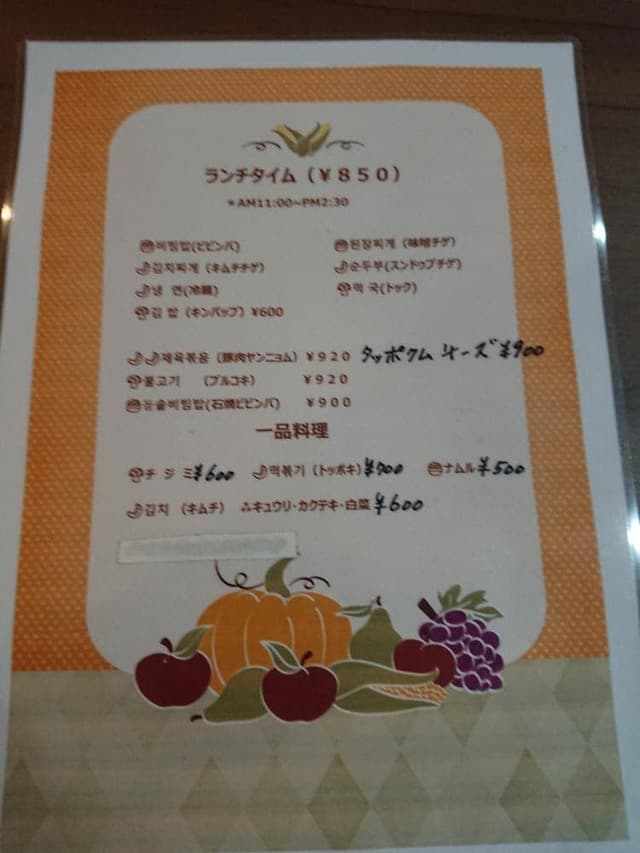 ランチタイム（¥８５０）
＊AM11:00~PM2:30
비빔밥(ビビンバ) 된장찌개（味噌チゲ）
김치찌개（キムチチゲ） 순두부(スンドゥブチゲ)
냉 면(冷麺) 떡 국(トック)
김 밥（キンパップ）¥600
제육볶음（豚肉ヤンニョム）¥９２０ タッポクム チーズ ¥900
불고기 （プルコキ） ¥９２０
돌솥비빔밥(石焼ビビンバ) ¥９００
一品料理
チ ジ ミ ¥600 떡볶기（トッポキ）¥700 ナムル ¥500
김치 （キムチ） ⁂キュウリ・カクテキ・白菜 ¥600